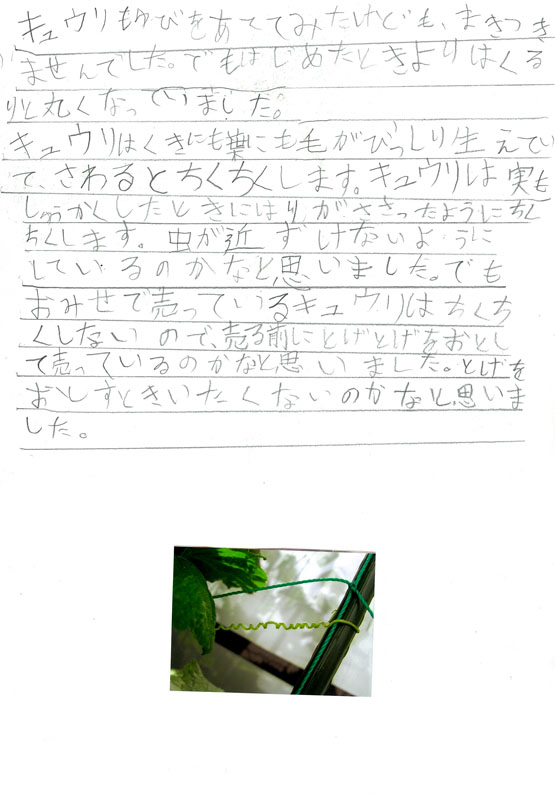 キュウリもゆびをあててみたけども、まきつき
ませんでした。でもはじめたときよりはくる
りと丸くなっていました。
キュウリはくきにも葉にも毛がびっしり生えてい
て、さわるとちくちくします。キュウリは実も
しゅうかくしたときにはりがささったようにちく
ちくします。虫が近ずけないように
しているのかなと思いました。でも
おみせで売っているキュウリはちくち
くしないので、売る前にとげとげをおとし
て売っているのかなと思いました。とげを
おとしすときいたくないのかなと思いま
した。